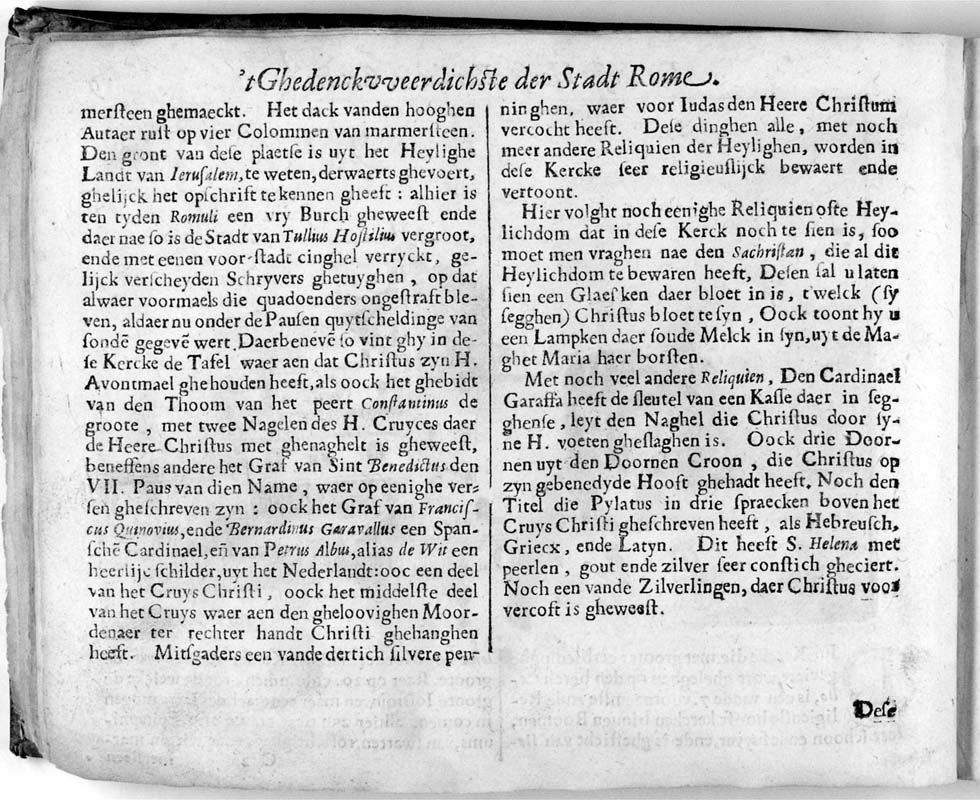 'tGhedenckvveerdichste der Stadt Rome.
mersteen ghemaeckt. Het dack vanden hooghen
Autaer rust op vier Colommen van marmersteen.
Den gront van dese plaetse is uyt het Heylighe
Landt van Ierusalem, te weten, derwaerts ghevoert,
ghelijck het opschrift te kennen gheeft: alhier is
ten tyden Romuli een vry Burch gheweest ende
daer nae so is de Stadt van Tullius Hostilius vergroot,
ende met eenen voor-stadt cinghel verryckt, ge-
lijck verscheyden Schryvers ghetuyghen, op dat
alwaer voormaels die quadoenders ongestraft ble-
ven, aldaer nu onder de Pausen quytscheldinge van
sondē gegevē wert. Daerbenevē so vint ghy in de-
se Kercke de Tafel waer aen dat Christus zyn H.
Avontmael ghehouden heeft, als oock het ghebidt
van den Thoom van het peert Constantinus de
groote, met twee Nagelen des H. Cruyces daer
de Heere Christus met ghenaghelt is gheweest,
beneffens andere het Graf van Sint Benedictus den
VII. Paus van dien Name, waer op eenighe ver-
sen gheschreven zyn: oock het Graf van Francis-
cus Quinovius, ende Bernardinus Garavallus een Span-
schē Cardinael, eñ van Petrus Albus, alias de Wit een
heerlijc schilder, uyt het Nederlandt: ooc een deel
van het Cruys Christi, oock het middelste deel
van het Cruys waer aen den gheloovighen Moor-
denaer ter rechter handt Christi ghehanghen
heeft. Mitsgaders een vande dertich silvere pen-
ninghen, waer voor Iudas den Heere Christum
vercocht heeft. Dese dinghen alle, met noch
meer andere Reliquien der Heylighen, worden in
dese Kercke seer religieuslijck bewaert ende
vertoont.
Hier volght noch eenighe Reliquien ofte Hey-
lichdom dat in dese Kerck noch te sien is, soo
moet men vraghen nae den Sachristan, die al dit
Heylichdom te bewaren heeft, Desen sal u laten
sien een Glaesken daer bloet in is, t'welck (sy
segghen) Christus bloet te syn, Oock toont hy u
een Lampken daer soude Melck in syn, uyt de Ma-
ghet Maria haer borsten.
Met noch veel andere Reliquien, Den Cardinael
Garaffa heeft de sleutel van een Kasse daer in seg-
ghense, leyt den Naghel die Christus door sy-
ne H. voeten gheslaghen is. Oock drie Door-
nen uyt den Doornen Croon, die Christus op
zyn gebenedyde Hooft ghehadt heeft. Noch den
Titel die Pylatus in drie spraecken boven het
Cruys Christi gheschreven heeft, als Hebreusch,
Griecx, ende Latyn. Dit heeft S. Helena met
peerlen, gout ende zilver seer constich gheciert.
Noch een vande Zilverlingen, daer Christus voor
vercoft is gheweest.
Dese